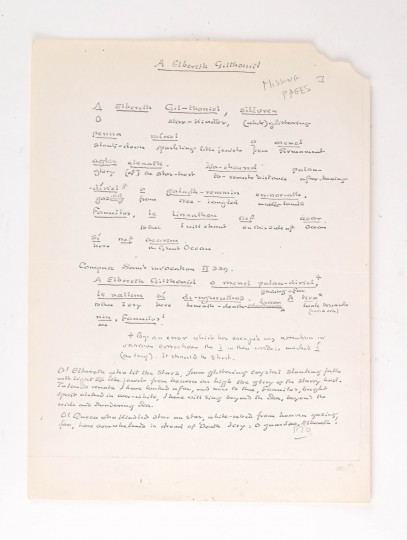 A Elbereth Gilthoniel
MISSING
PAGES
A Elbereth Gil-thoniel, silivren
O star-kindler, (white) glittering
penna míriel o menel
slants-down sparkling like jewels from firmament
aglar elenath. Na-chaered palan-
glory [of] the star-host to-remote distance after-having
-díriel o galadh-remmin ennorath,
gazing from tree-tangled middle lands
Fanuilos, le linnathon nef aear,
to thee I will chant on this side of Ocean
sí nef aearon
here Great Ocean
Compare Sam's invocation II 339.
A Elbereth Gilthoniel o menel palan-diriel,
gazing-far
le nallon sí di-nguruthos. A tiro
to thee I cry here beneath-death- look towards
nin, Fanuilos!
me
+ By an error which has escaped my attention in
in two words is marked
It should be short.
O! Elbereth who lit the Stars, from glittering crystal slanting falls
with light like jewels from heaven on high the glory of the starry host.
To lands remote I have looked afar, and now to thee, Fanuilos, bright
spirit clothed in ever-white, I here will sing beyond the Sea, beyond the
wide and Sundering Sea.
O! Queen who kindled star on star, white-robed from heaven gazing
far, here overwhelmed in dread of Death I cry: O guard me, Elbereth!